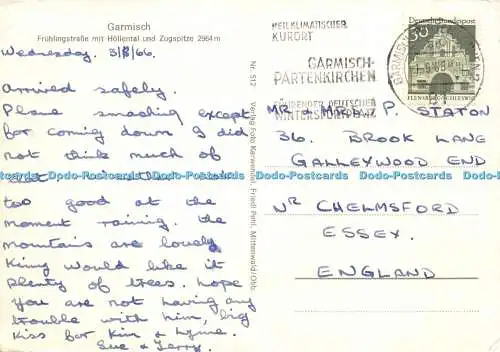 Garmisch
Frühlingstraße mit Höllental und Zugspitze 2964 m
Wednesday. 31/8/66.
Arrived safely.
Plane smashing except
for coming down I did
not think much of
that
too good at the
moment raining. the
mountains are lovely
Kimy would like it
plenty of trees. hope
you are not having any
trouble with him, big
kiss for Kim & Lynne.
Sue & Terry.
Nr. 512 Verlag Foto Karwendel, Friedl Pehl, Mittenwald/Obb.
HEILKLIMATISCHER
KURORT
GARMISCH-
PARTENKIRCHEN
FÜHRENDER DEUTSCHER
WINTERSPORTPLATZ
Deutsche Bundespost
30
FLENSBURG/SCHLESWIG
MR & MRS P. STATON
36. BROOK LANE
GALLEYWOOD END
NR CHELMSFORD
ESSEX.
ENGLAND
Dodo-Postcards Dodo-Postcards Dodo-Postcards Dodo-Postcards Dodo-Postcards Dodo-Postcards